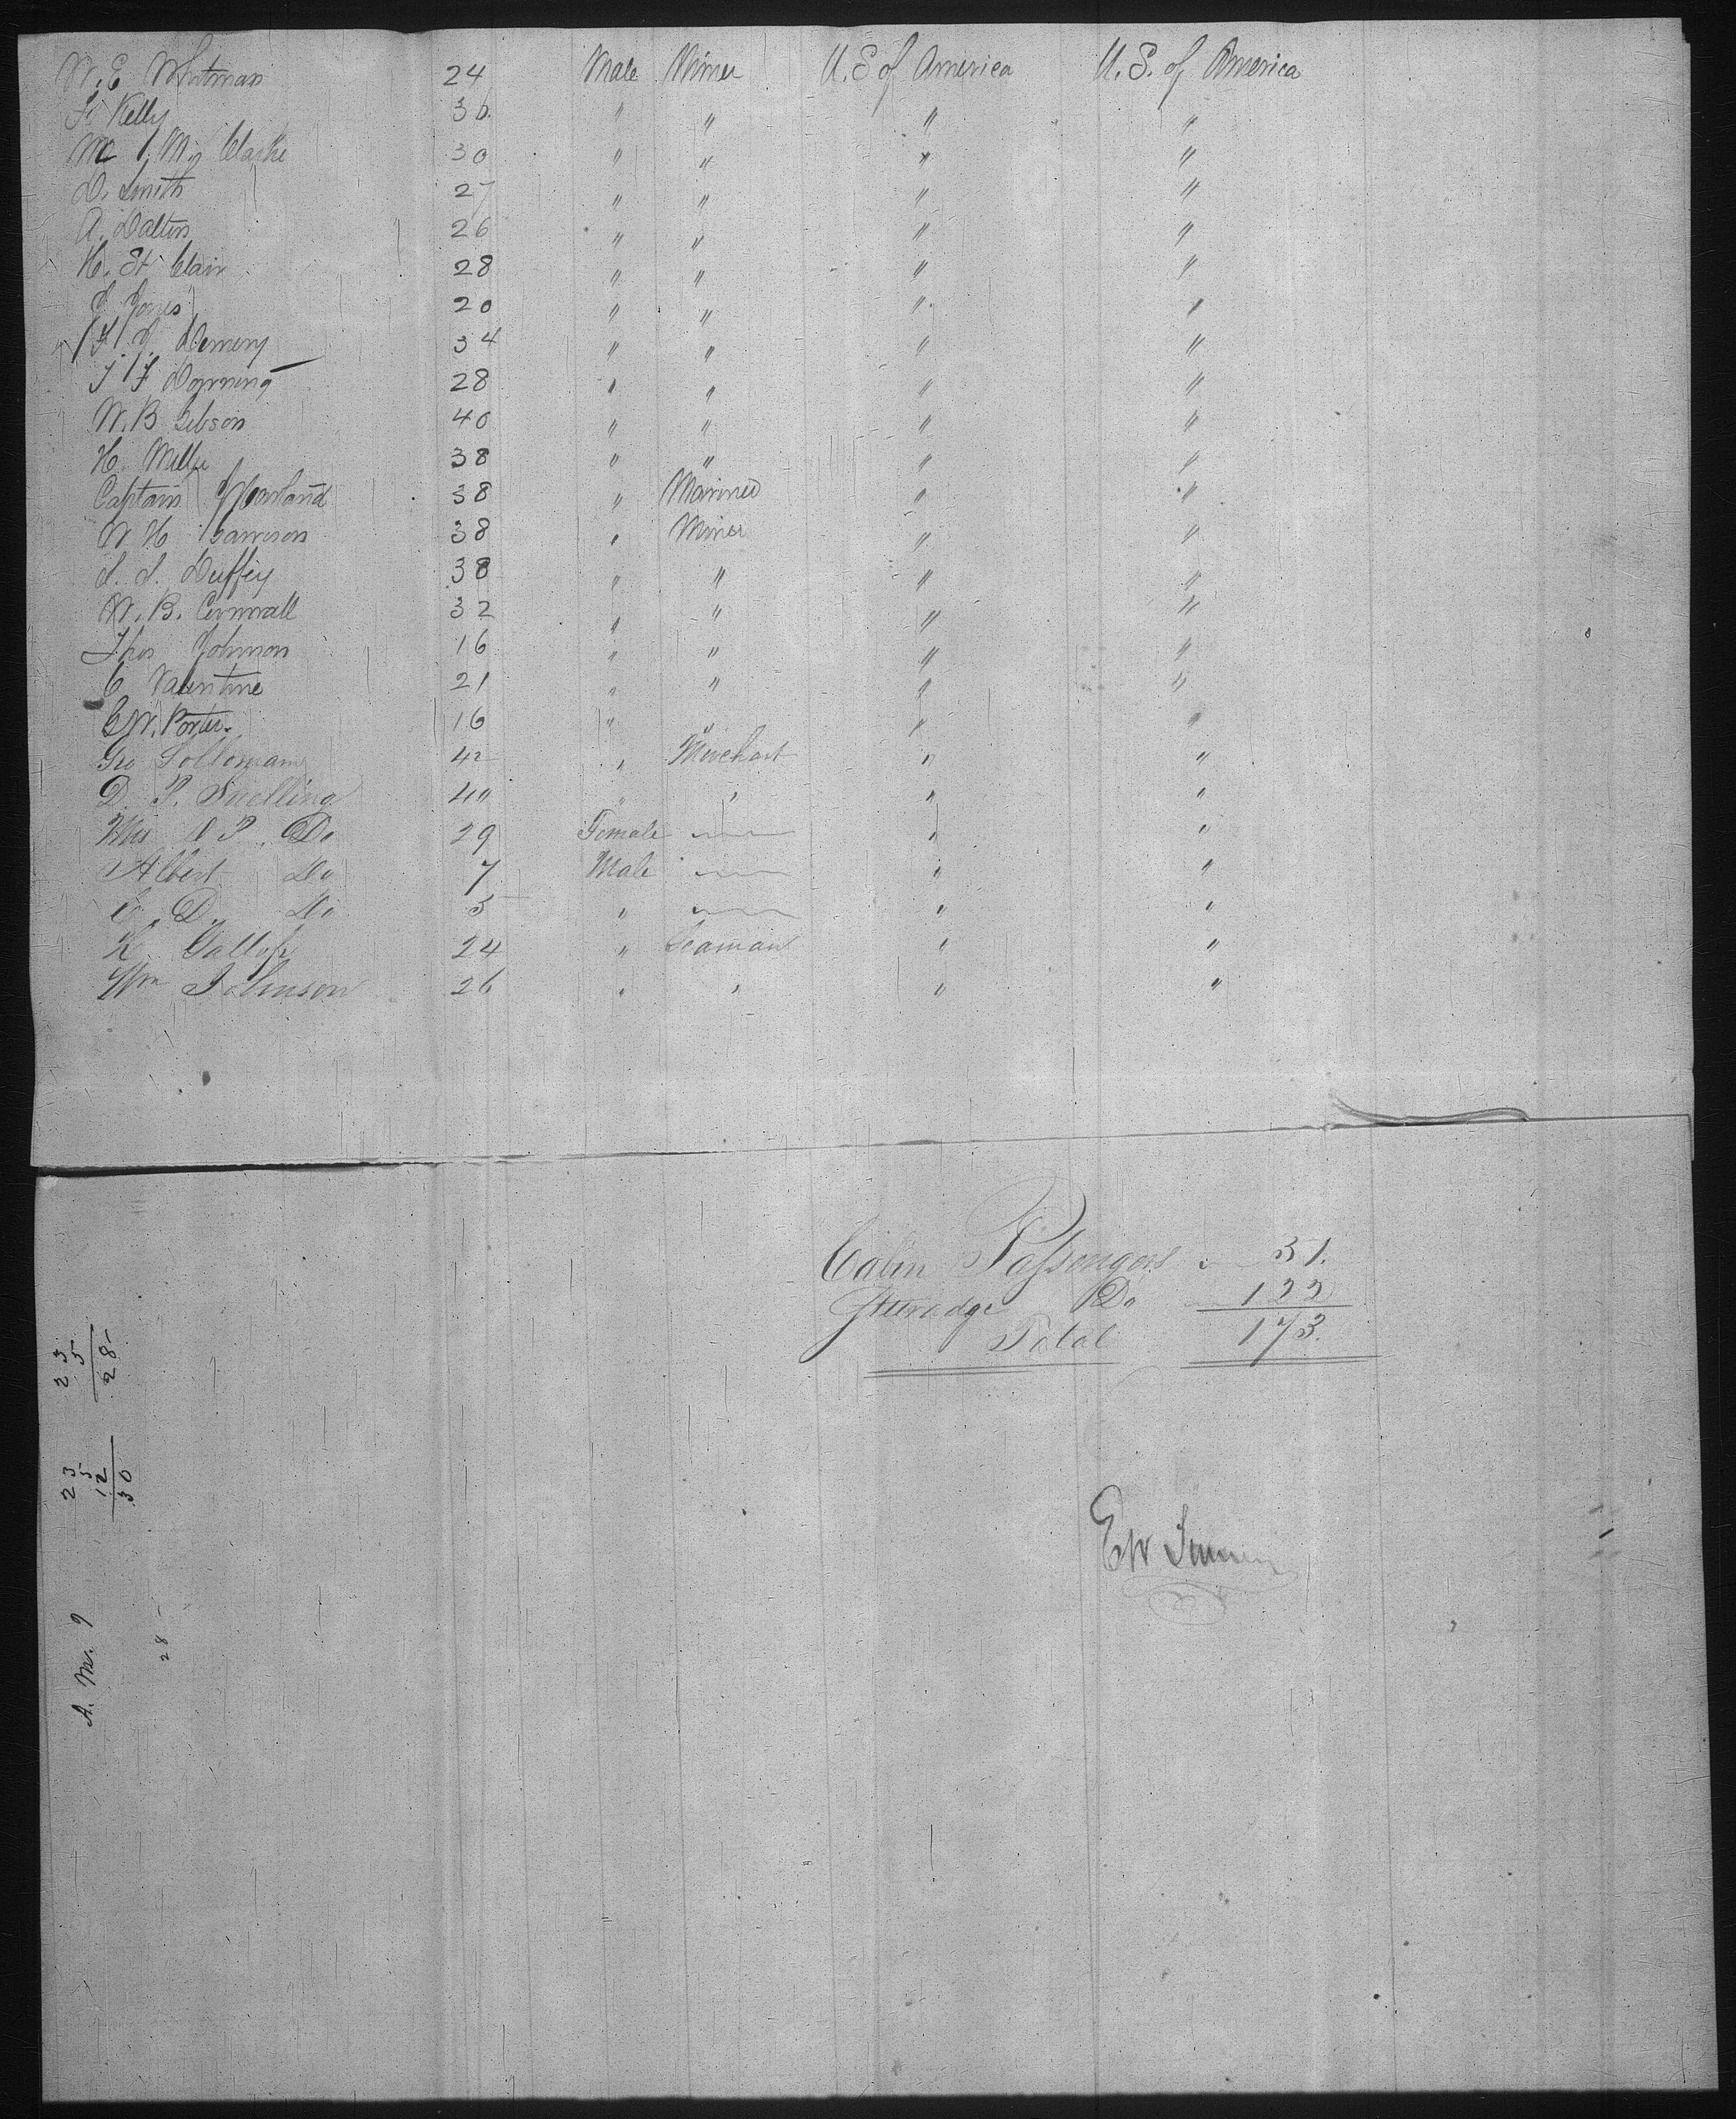 W. E Whitman 24 Male Miner U. S of America U. S. of America
F. Kelly 36 " " " "
Clarke 30 " " " "
D. Smith 27 " " " "
A. Dalton 26 " " " "
H. St Clair 28 " " " "
Jones 20 " " " "
34 " " " "
28 " " " "
W. B Gibson 40 " " " "
H. 38 " " " "
Captain 38 " Mariner " "
W H Garrison 38 " Miner " "
Duffey 38 " " " "
W. B. Cornwall 32 " " " "
Thos Johnson 16 " " " "
C Valentine 21 " " " "
E W. Porter 16 " " " "
Geo 42 " Merchant " "
D. P. Snelling 40 " " " "
Mrs D P. Do 29 Female " "
Albert Do 7 Male " "
D. Do 5 " " "
Gallop 24 " Seaman " "
Wm Johnson 26 " " " "
Cabin Passengers 51.
Steeradge Do 122
Total 173.
23
5
28
23
5
12
30
E W
A. M. 9
28